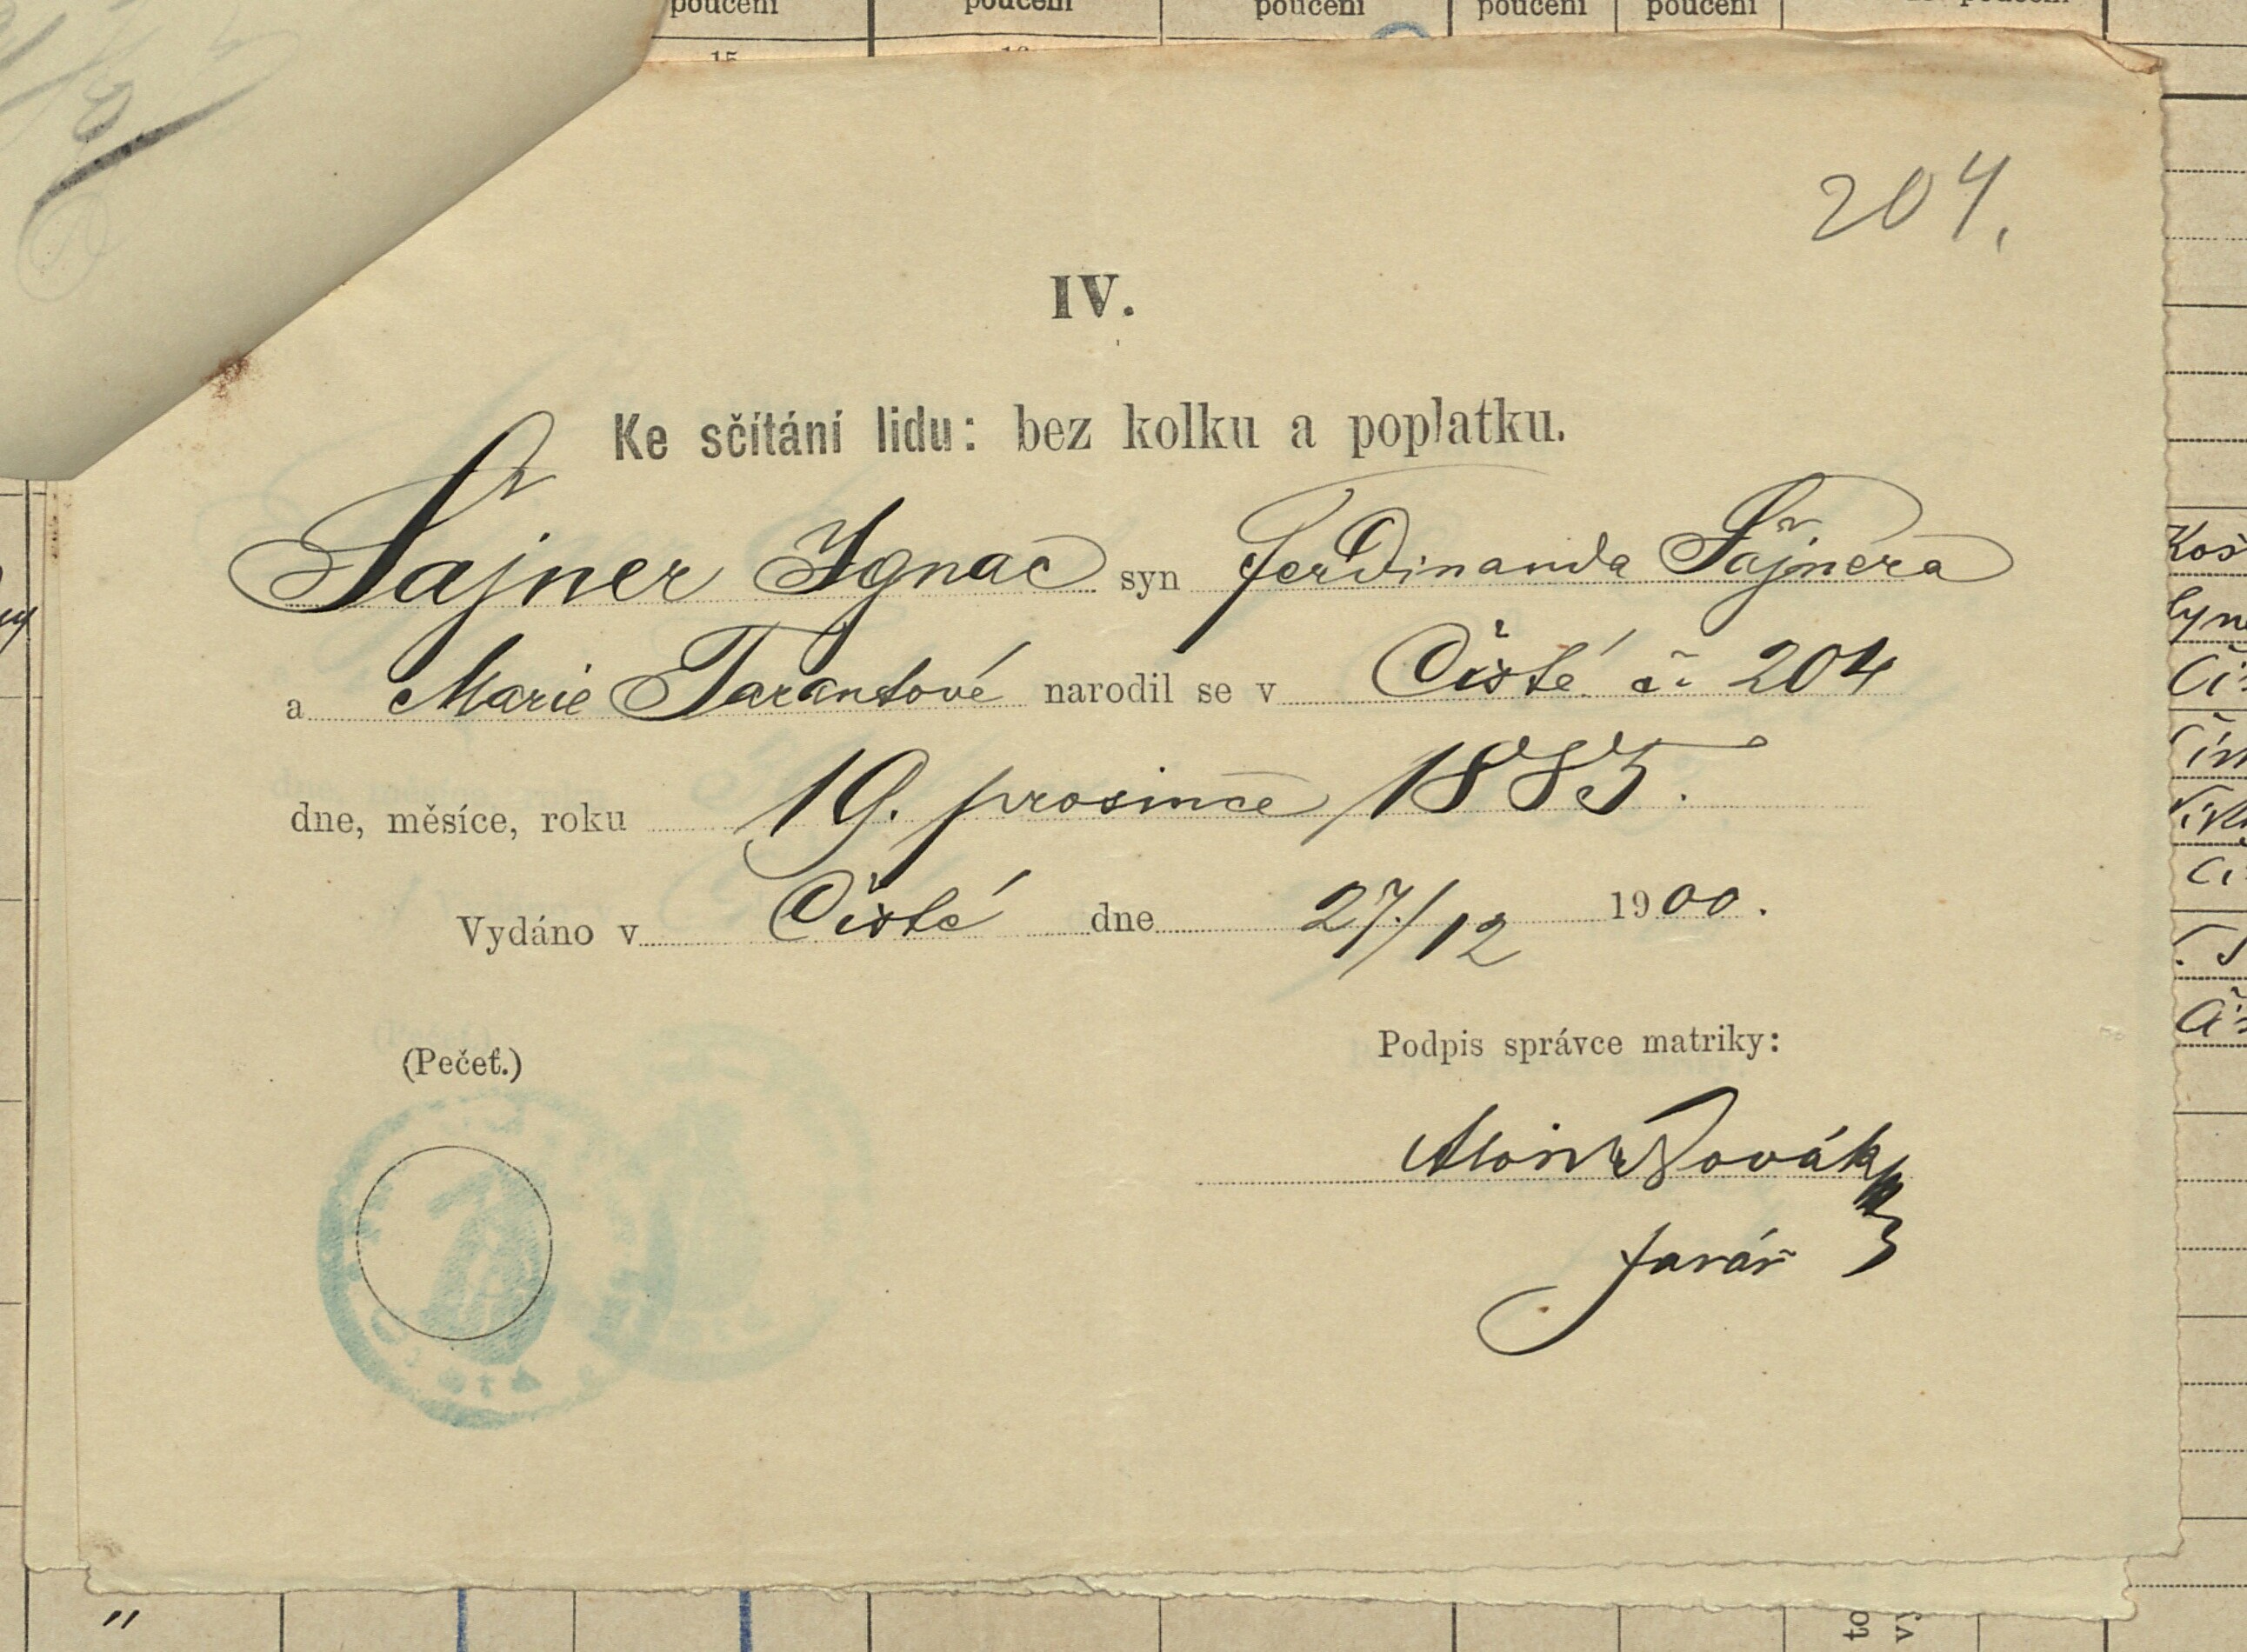 poučení poučení poučení poučení poučení poučení
15
204.
IV.
Ke sčítání lidu: bez kolku a poplatku.
Šajner Ignac syn Ferdinanda Šajnera
a Marie Tarantové narodil se v Čisté č 204
dne, měsíce, roku 19. prosince 1885.
Vydáno v Čisté dne 27./12 1900.
(Pečeť.)
Podpis správce matriky:
Alois Novák
farář
"
to